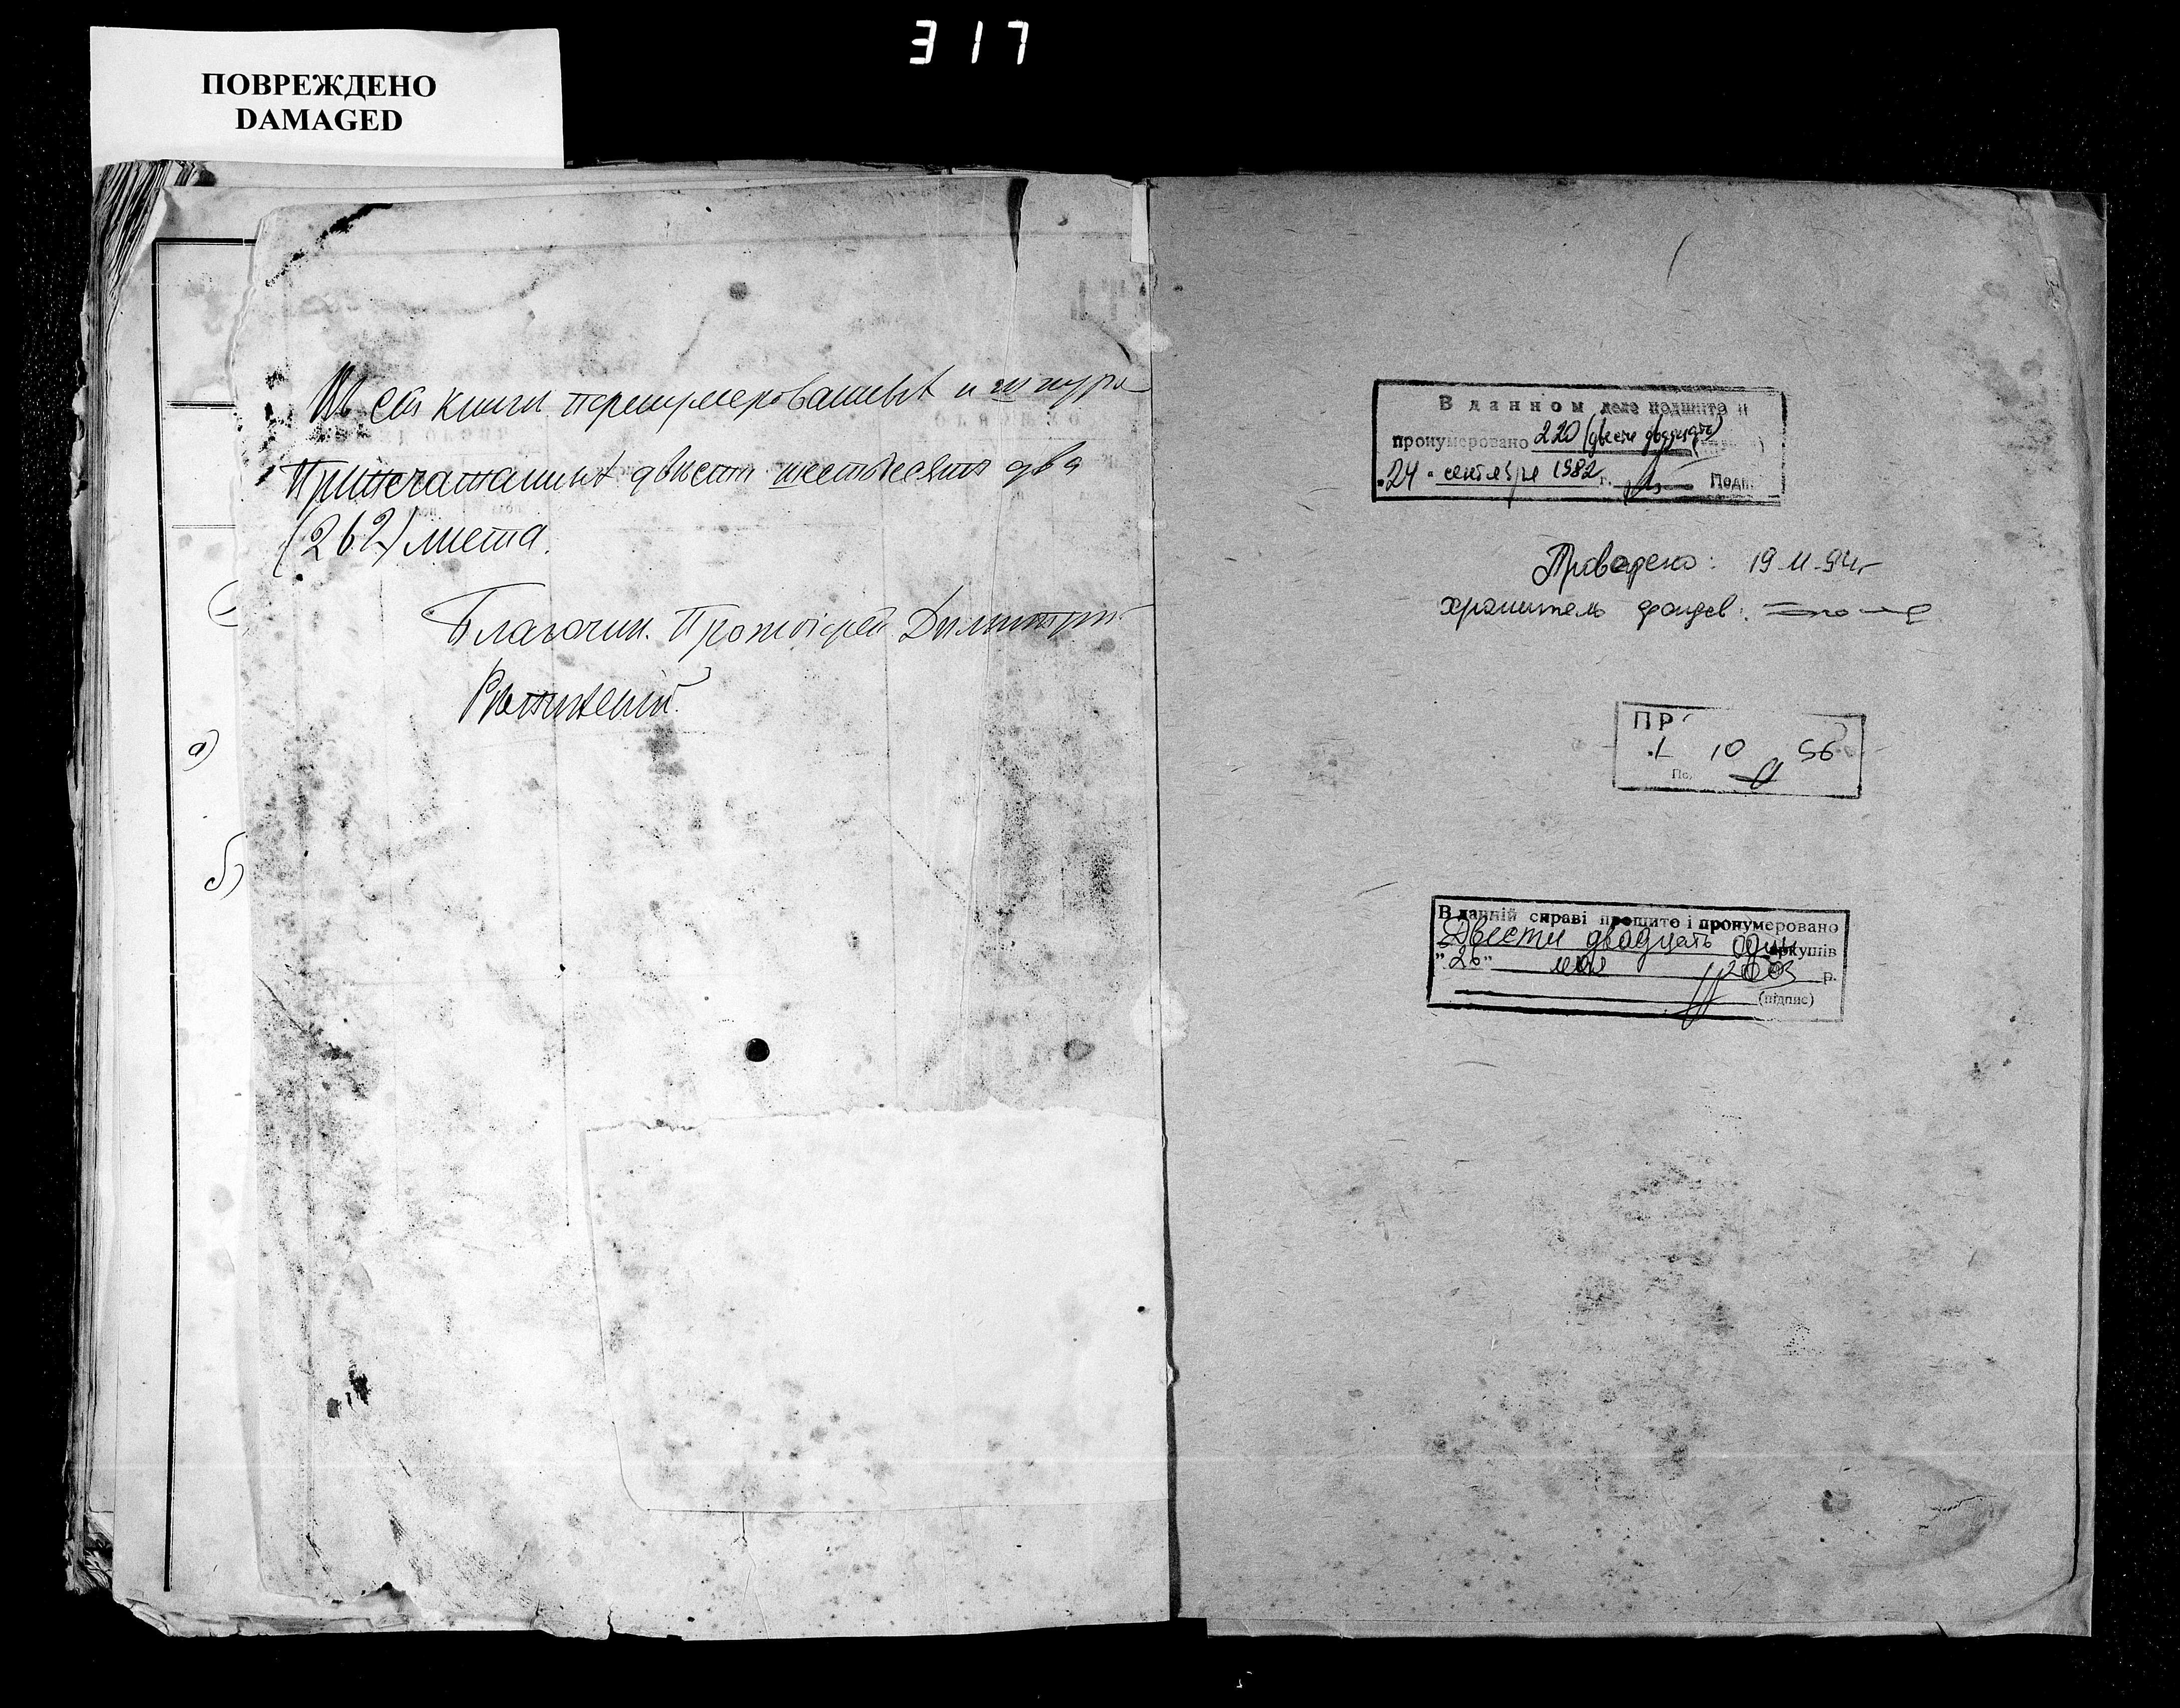 317
ПОВРЕЖДЕНО
DAMAGED
Въ сей книгѣ перенумерованныхъ и шнура
припечатанныхъ двѣсти шестьдесятъ два
(262) листа.
Благочин. Протоіерей Димитрій
а)
б)
В данном деле подшито и
пронумеровано 220 (двести двадцать)
"24" сентября 1982 г. Подп
Проверено: 19-11-94 г
хранитель фондов:
ПР
1 10 56
По
В данній справі прошито і пронумеровано
Двести двадцать один аркушів
"26" мая 2003 р.
(підпис)